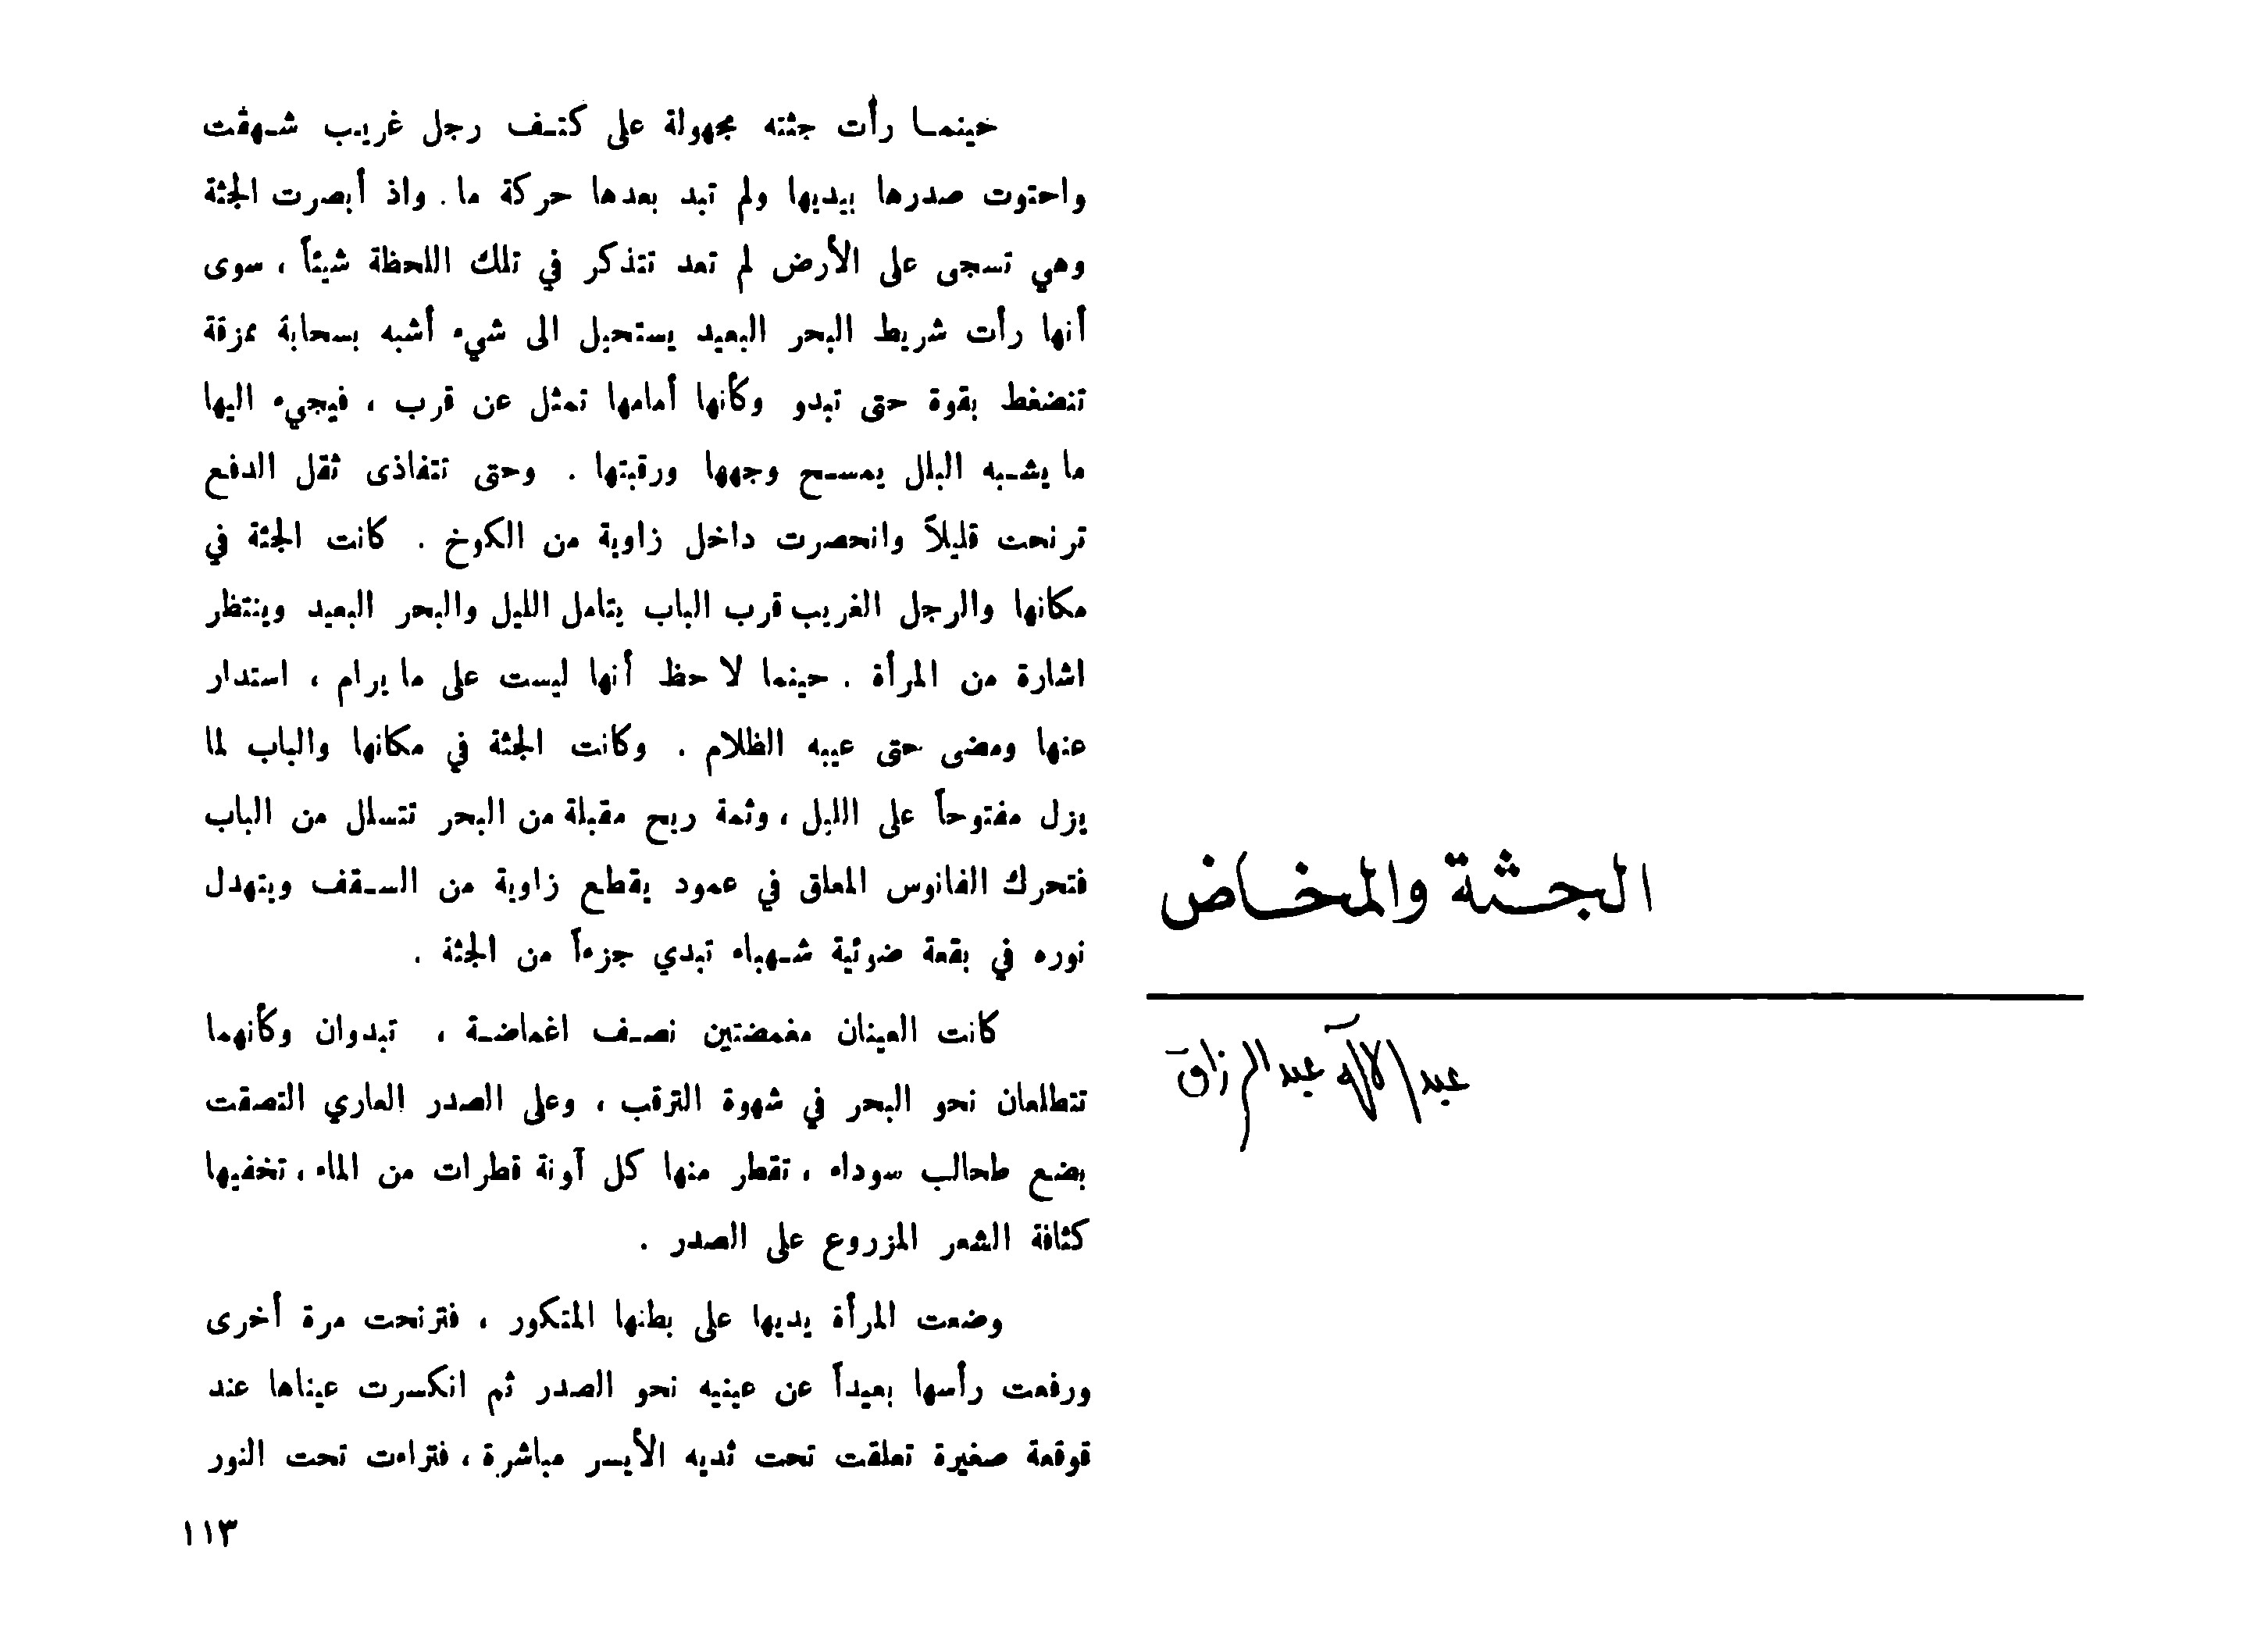 الجثة والمخاض
عبد الاله عبد الرزاق
حينما رأت جثته مجهولة على كتف رجل غريب شهقت
واحتوت صدرها بيديها ولم تبد بعدها حركة ما . واذ أبصرت الجثة
وهي تسجى على الأرض لم تعد تتذكر في تلك اللحظة شيئاً ، سوى
أنها رأت شريط البحر البعيد يستحيل الى شيء أشبه بسحابة ممزقة
تنضغط بقوة حتى تبدو وكأنها أمامها تمثل عن قرب ، فيجيء اليها
ما يشبه البلل يمسح وجهها ورقبتها . وحتى تتفاذى ثقل الدفع
ترنحت قليلاً وانحصرت داخل زاوية من الكوخ . كانت الجثة في
مكانها والرجل الغريب قرب الباب يتامل الليل والبحر البعيد وينتظر
اشارة من المرأة . حينما لاحظ أنها ليست على ما يرام ، استدار
عنها ومضى حتى عيبه الظلام . وكانت الجثة في مكانها والباب لما
يزل مفتوحاً على الليل ، وثمة ريح مقبلة من البحر تتسلل من الباب
فتحرك الفانوس المعلق في عمود يقطع زاوية من السقف ويتهدل
نوره في بقعة ضوئية شهباء تبدي جزءاً من الجثة .
كانت العينان مغمضتين نصف اغماضة ، تبدوان وكأنهما
تتطلعان نحو البحر في شهوة الترقب ، وعلى الصدر العاري التصقت
بضع طحالب سوداء ، تقطر منها كل آونة قطرات من الماء ، تخفيها
كثافة الشعر المزروع على الصدر .
وضعت المرأة يديها على بطنها المتكور ، فترنحت مرة أخرى
ورفعت رأسها بعيداً عن عينيه نحو الصدر ثم انكسرت عيناها عند
قوقعة صغيرة تعلقت تحت ثديه الأيسر مباشرة ، فتراءت تحت النور
١١٣